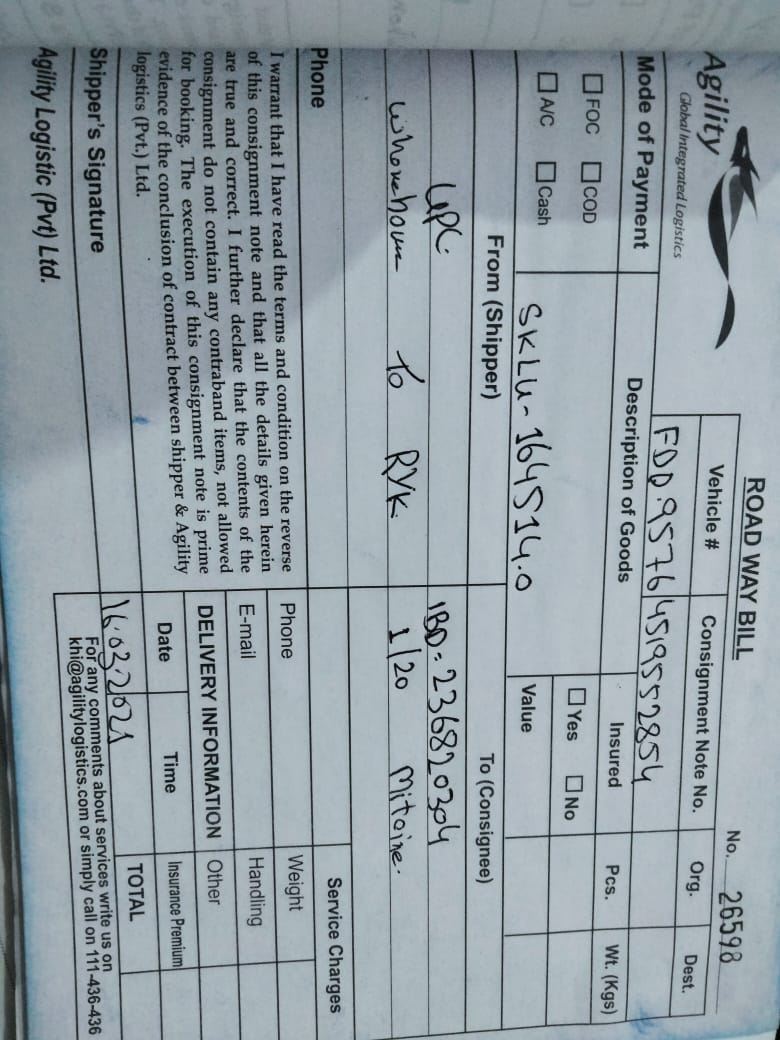 ROAD WAY BILL
No. 26598
Agility
Global Integrated Logistics
Vehicle # Consignment Note No. Org. Dest.
FDD.9576 4519552854
Mode of Payment Description of Goods Insured Pcs. Wt. (Kgs)
FOC COD Yes No
A/C Cash Value
SKLU-164514.0
From (Shipper) To (Consignee)
UPL IBD=236820304
To RYK 1/20
Phone
Service Charges
I warrant that I have read the terms and condition on the reverse
of this consignment note and that all the details given herein
are true and correct. I further declare that the contents of the
consignment do not contain any contraband items, not allowed
for booking. The execution of this consignment note is prime
evidence of the conclusion of contract between shipper & Agility
logistics (Pvt.) Ltd.
Phone Weight
E-mail Handling
DELIVERY INFORMATION Other
Date Time Insurance Premium
16.03.2021 TOTAL
Shipper's Signature
For any comments about services write us on
khi@agilitylogistics.com or simply call on 111-436-436
Agility Logistic (Pvt) Ltd.